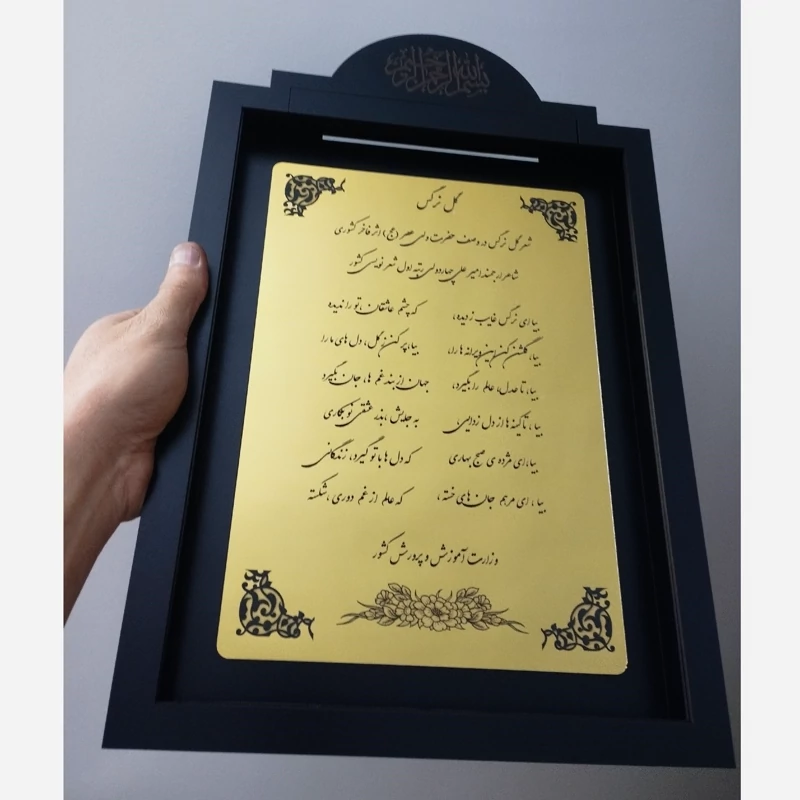 بسم الله الرحمن الرحیم
گل نرگس
شعر گل نرگس در وصف حضرت ولی عصر (عج) اثر فاخر کشوری
شاعر ارجمند امیر علی چهاردولی رتبه اول شعر نویسی کشور
بیا ای نرگس غایب ز دیده، که چشم عاشقان، تو را ندیده
بیا، گلشن کن این ویرانه ها را، بیا، پر کن ز گل، دل های ما را
بیا، تا عدل، عالم را بگیرد، جهان از بند غم ها، جان بگیرد
بیا، تا کینه ها از دل زدایی، به جایش، بذر عشقی نو بکاری
بیا، ای مژده ی صبح بهاری که دل ها با تو گیرد، زندگانی
بیا، ای مرهم جان های خسته، که عالم از غم دوری، شکسته
وزارت آموزش و پرورش کشور